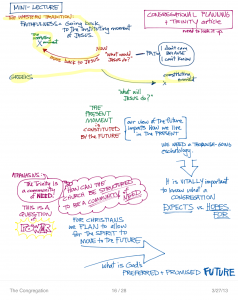 MINI-LECTURE
THE WESTERN TRADITION:
FAITHFULNESS = Going back
to the instituting moment
of JESUS.
CONGREGATIONAL PLANNING
+ Trinity article
need to look it up.
the
instituting
moment
X
NOW
"what would
Jesus do?"
move back to JESUS
PATH
I don't care
because
I can't know
GREEKS
constituting
moment
X
"what will
Jesus do?"
THE
PRESENT
MOMENT
IS
CONSTITUTED
BY the FUTURE
our view of the future
impacts How we live
in the PRESENT
We need a thorough-going
eschatology.
ATHANASIUS
the Trinity is
a community
of NEED!
HOW CAN THE
CHURCH BE STRUCTURED
TO BE A COMMUNITY of NEED?
THIS IS A
QUESTION
of
POWER
It is VITALLY important
to know what a
CONGREGATION
EXPECTS vs. HOPES
FOR
FOR CHRISTIANS
WE PLAN to ALLOW
for THE SPIRIT to
MOVE to THE FUTURE
what is God's
PREFERRED + PROMISED FUTURE
The Congregation
16 / 28
3/27/13